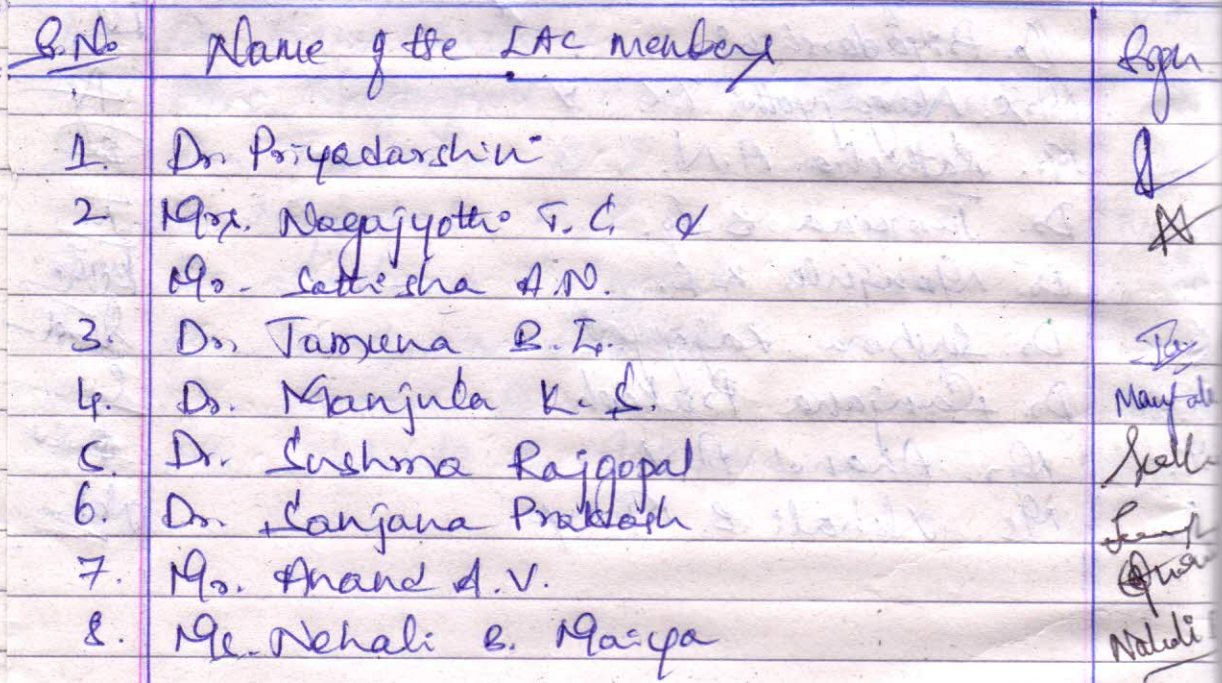 S.No Name of the LAC members Sign
1. Dr. Priyadarshini
2 Mrs. Nagajyothi T.C. &
Mr. Sathisha A.N.
3. Dr. Jamuna B.L.
4. Dr. Manjula K.S. Manjula
5. Dr. Sushma Rajgopal
6. Dr. Sanjana Prakash
7. Mr. Anand A.V.
8. Ms. Nehali B. Maiya Nehali